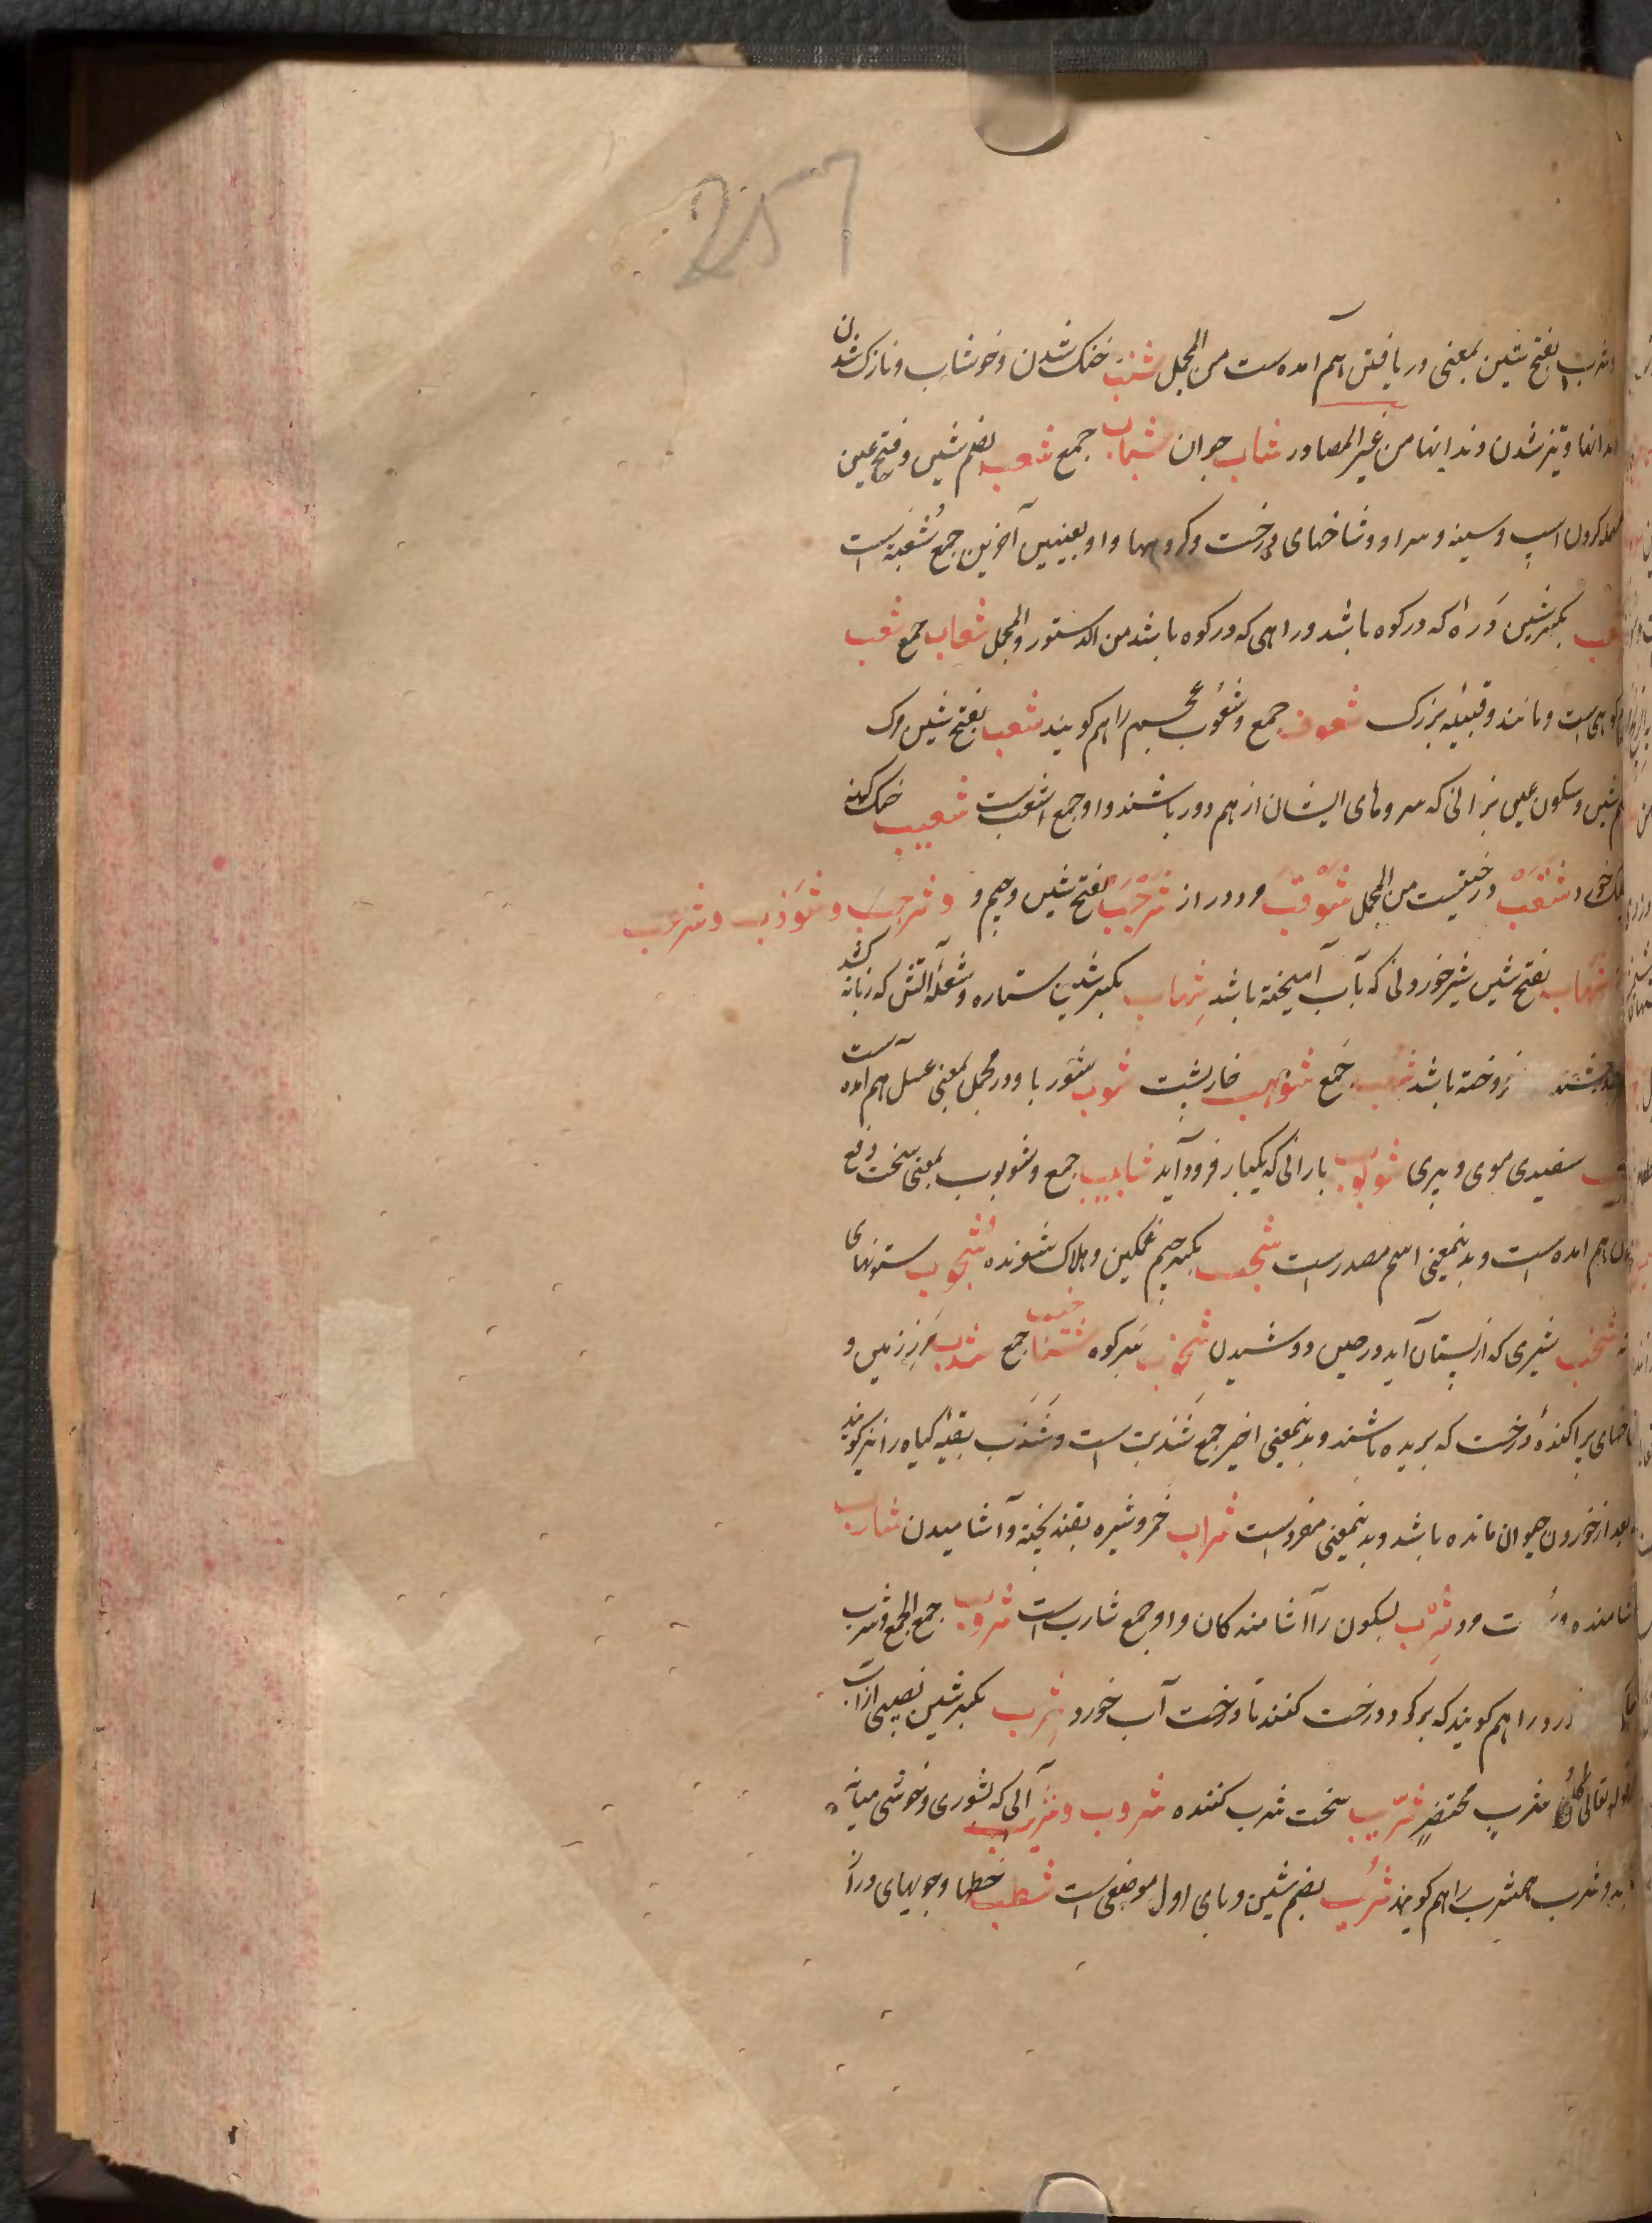 257
و شرب بفتح شین بمعنی دریافتن هم آمده است من المجمل شنب خنک شدن و خوشاب و نازک شدن
دندانها و تیز شدن دندانها من غیر المصادر شاب جوان شباب جمع شعب بضم شین و فتح عین
کردن اسپ و سینه و سر او و شاخهای درخت و گروهها و او بمعنیین آخرین جمع شعبة است
شعب بکسر شین دره که در کوه باشد و راهی که در کوه باشد من الدستور و المجمل شعاب جمع شعب
کوهی است و مانند و قبیله بزرک شعوب جمع و شعوب عجم را هم کویند شعب بفتح شین مرک
شین و سکون عین بزانی که سروهای ایشان از هم دور باشند و او جمع اشعب است شعیب خنک کهنه
شقب درختیست من المجمل شوقب مرد دراز شرجب بفتح شین و جیم و و شرحب و شوذب و شرعب
شهاب بفتح شین شیر خوردنی که بآب آمیخته باشد شهاب بکسر شین ستاره و شعله آتش که زبانه کشد
فروخته باشد شهب جمع شوهب خارپشت شوب شوربا و در مجمل بمعنی عسل هم آمده است
سفیدی موی و پیری شؤبوب بارانی که یکبار فرود آید شآبیب جمع و شوبوب بمعنی سخت دفع
هم آمده است و بدینمعنی اسم مصدر است شجب بکسر جیم غمکین و هلاک شونده شجوب ستونهای
شخب شیری که از پستان آید در حین دوشیدن شنخوب سر کوه شناخیب جمع شذب مرز زمین و
شاخهای پراکنده درخت که بریده باشند و بدینمعنی اخیر جمع شذبة است و شذب بقیه کیاه را نیز کویند
بعد از خوردن حیوان مانده باشد و بدینمعنی مفرد است شراب خمر و شیره بقند پخته و آشامیدن شارب
آشامنده و شرب بسکون را آشامندکان و او جمع شارب است شروب جمع الجمع و شرب
را هم کویند که بر کرد درخت کنند تا درخت آب خورد شرب بکسر شین نصیبی از آب
قوله تعالی کل شرب محتضر شریب سخت شرب کننده شروب و شریب آبی که بشوری و خوشی میانه
و شرب همشرب را هم کویند شربب بضم شین و بای اول موضعی است شطب خطها و جویهای در آن